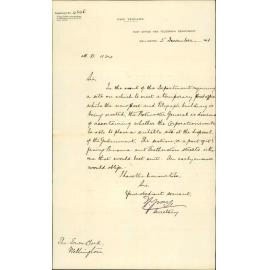 NEW ZEALAND
POST OFFICE AND TELEGRAPH DEPARTMENT
5 December
Sir
In the event of the Department requiring
a site on which to erect a temporary post office
while the new Post and Telegraph building is
being erected, the Postmaster General is desirous
of ascertaining whether the Corporation would
be able to place a suitable site at the disposal
of the Government. The section
Panama and Featherston Streets
one that would best suit. An early answer
would oblige.
I have the honour to be
Sir
Your obedient servant
Secretary
The Town Clerk
Wellington